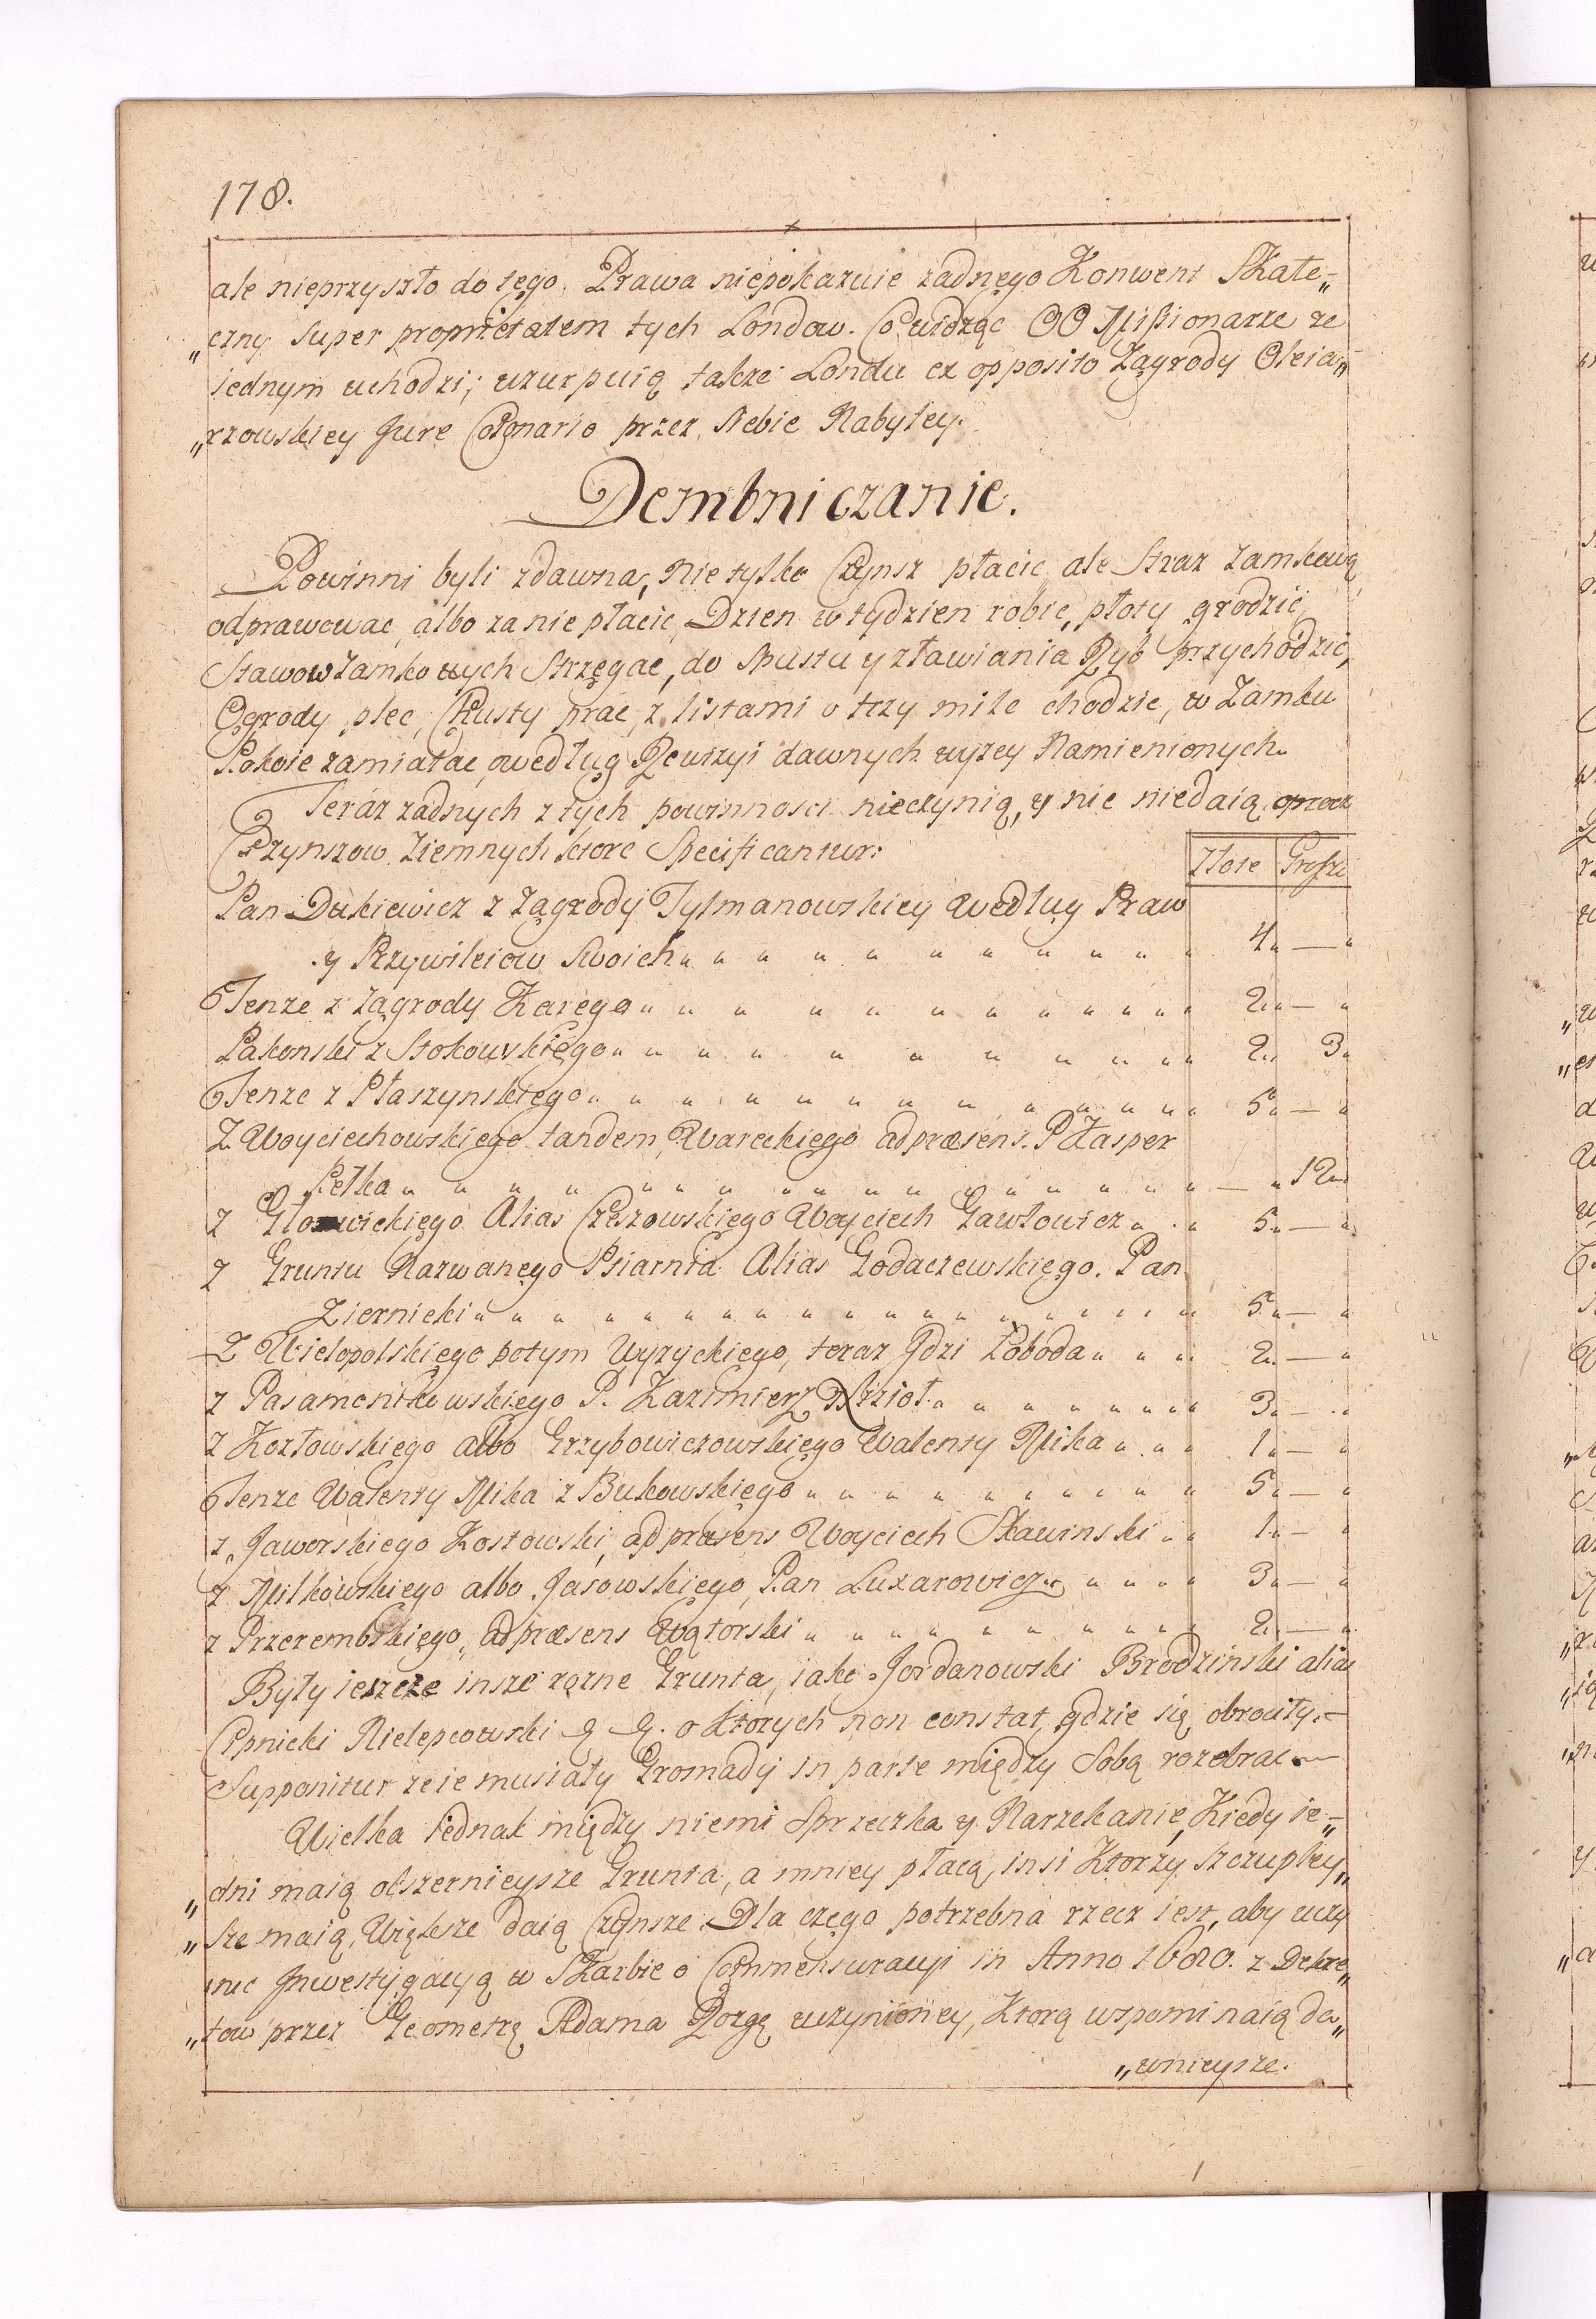 178.
ale nieprzyszło do tego. Prawa niepokazuie zadnego Konwent Skałe„
„czny super proprietatem tych Londow. Co widząc OO Missionarze ze
iednym uchodzi; uzurpuią także Londu ex opposito Zagrody Oleia„
„rzowskiey Jure przez Siebie Nabytey.
Dembniczanie.
Powinni byli zdawna, nie tylko Czynsz płacic, ale Straz zamkową
odprawowac, albo za nie płacic, Dzien w tydzien robic, płoty grodzic,
Stawow Zamkowych Strzegac, do Spustu y zławiania Ryb przychodzic,
Ogrody plec, Chusty prac, z listami o trzy mile chodzic, w Zamku
Pokoie zamiatac, według Rewizyi dawnych wyzey Namienionych.
Teraz zadnych z tych powinnosci nieczynią, y nic niedaią oprocz
Czynszow Ziemnych ktore Specificantur:
Złote Grosze
Pan Dukiewicz z Zagrody Tylmanowskiey według Praw
y Przywileiow Swoich „ 4 „ — „
Tenze z Zagrody Karego „ 2 „ — „
Pakonski z Stokowskiego „ 2 „ 3 „
Tenze z Ptaszynskiego „ 5 „ — „
Z Woyciechowskiego tandem Wareckiego ad præsens. P Kasper
Pełka „ — „ 12 „
Z Alias Czeszowskiego Woyciech Gawłowicz „ 5 „ — „
Z Gruntu Nazwanego Psiarnia Alias Godaczewskiego. Pan
Ziernicki „ 5 „ — „
Z Wielopolskiego potym Wyzyckiego, teraz Jdzi Łoboda „ 2 „ — „
z Pasamonikowskiego P. Kazimierz „ 3 „ — „
z Kozłowskiego albo Grzybowiczowskiego Walenty Mika „ 1 „ — „
Tenze Walenty Mika z Bukowskiego „ 5 „ — „
z Jaworskiego Kostowski, ad præsens Woyciech Sławinski „ 1 „ — „
z Milkowskiego albo Jasowskiego, Pan Luxarowicz „ 3 „ — „
z Przerembskiego, ad præsens Wątorski „ 2 „ — „
Były ieszcze insze rozne Grunta, iako Jordanowski Brodzinski alias
Nielepcowski & &. o Ktorych non constat, gdzie się obrociły.
Supponitur ze ie musiały Gromady in parte między Sobą rozebrac
Wielka iednak między niemi Sprzeczka y Narzekanie, Kiedy ie„
„dni maią obszernieysze Grunta, a mniey płacą, insi Ktorzy szczupley„
„sze maią, Większe daią Czynsze. Dla czego potrzebna rzecz iest, aby uczy
nic Jnwestygacyą w Skarbie o Commensuracyi in Anno 1680. z Dekre„
„tow przez Geometrę Adama Rozgę uczynioney, Ktorą wspominaią da„
„wnieysze.